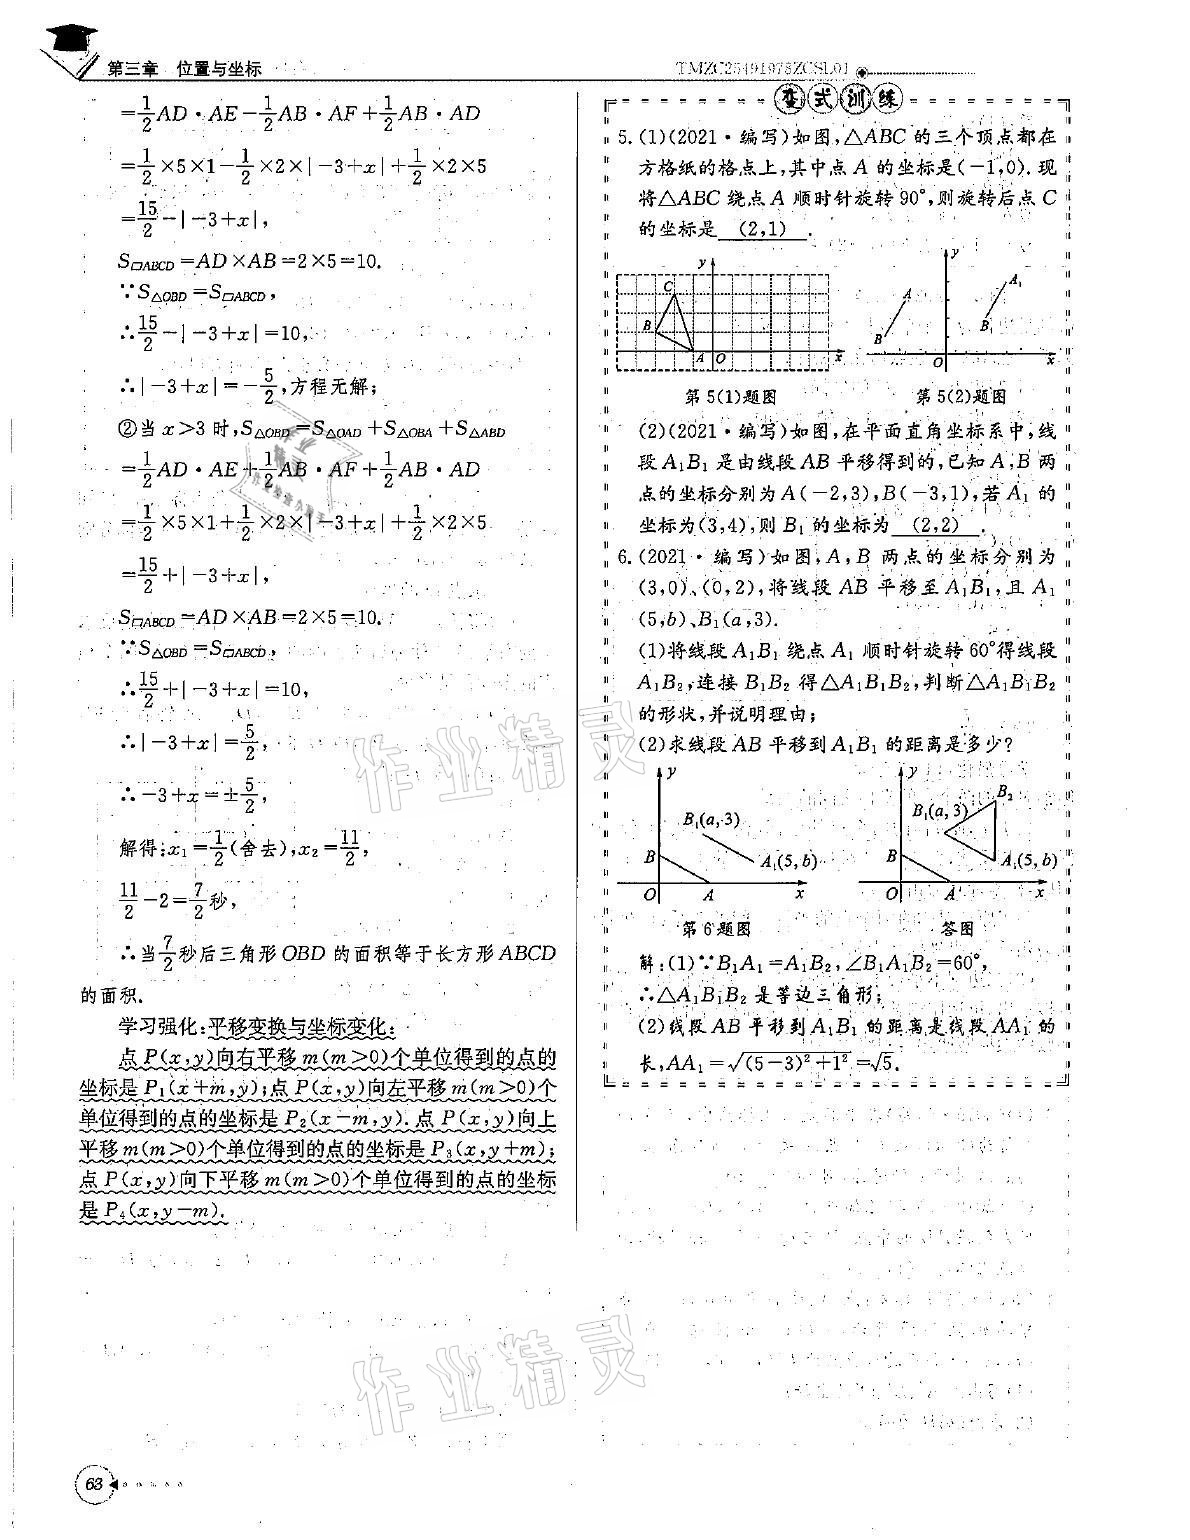 第三章 位置与坐标
TMZC25491978ZCSL01
=1/2AD·AE-1/2AB·AF+1/2AB·AD
=1/2×5×1-1/2×2×|-3+x|+1/2×2×5
=15/2-|-3+x|,
S▱ABCD=AD×AB=2×5=10.
∵S△OBD=S▱ABCD,
∴15/2-|-3+x|=10,
∴|-3+x|=-5/2,方程无解;
②当x>3时,S△OBD=S△OAD+S△OBA+S△ABD
=1/2AD·AE+1/2AB·AF+1/2AB·AD
=1/2×5×1+1/2×2×|-3+x|+1/2×2×5
=15/2+|-3+x|,
S▱ABCD=AD×AB=2×5=10.
∵S△OBD=S▱ABCD,
∴15/2+|-3+x|=10,
∴|-3+x|=5/2,
∴-3+x=±5/2,
解得:x₁=1/2(舍去),x₂=11/2,
11/2-2=7/2秒,
∴当7/2秒后三角形OBD的面积等于长方形ABCD
的面积.
学习强化:平移变换与坐标变化:
点P(x,y)向右平移m(m>0)个单位得到的点的
坐标是P₁(x+m,y);点P(x,y)向左平移m(m>0)个
单位得到的点的坐标是P₂(x-m,y).点P(x,y)向上
平移m(m>0)个单位得到的点的坐标是P₃(x,y+m);
点P(x,y)向下平移m(m>0)个单位得到的点的坐标
是P₄(x,y-m).
63
变式训练
5.(1)(2021·编写)如图,△ABC的三个顶点都在
方格纸的格点上,其中点A的坐标是(-1,0).现
将△ABC绕点A顺时针旋转90°,则旋转后点C
的坐标是 (2,1) .
y
C
B
A O x
y
A A₁
B B₁
O x
第5(1)题图 第5(2)题图
(2)(2021·编写)如图,在平面直角坐标系中,线
段A₁B₁是由线段AB平移得到的,已知A,B两
点的坐标分别为A(-2,3),B(-3,1),若A₁的
坐标为(3,4),则B₁的坐标为 (2,2) .
6.(2021·编写)如图,A,B两点的坐标分别为
(3,0)、(0,2),将线段AB平移至A₁B₁,且A₁
(5,b)、B₁(a,3).
(1)将线段A₁B₁绕点A₁顺时针旋转60°得线段
A₁B₂,连接B₁B₂得△A₁B₁B₂,判断△A₁B₁B₂
的形状,并说明理由;
(2)求线段AB平移到A₁B₁的距离是多少?
y
B₁(a,3)
B A₁(5,b)
O A x
y
B₂
B₁(a,3)
B A₁(5,b)
O A x
第6题图 答图
解:(1)∵B₁A₁=A₁B₂,∠B₁A₁B₂=60°,
∴△A₁B₁B₂是等边三角形;
(2)线段AB平移到A₁B₁的距离是线段AA₁的
长,AA₁=√(5-3)²+1²=√5.
作业精灵
作业精灵